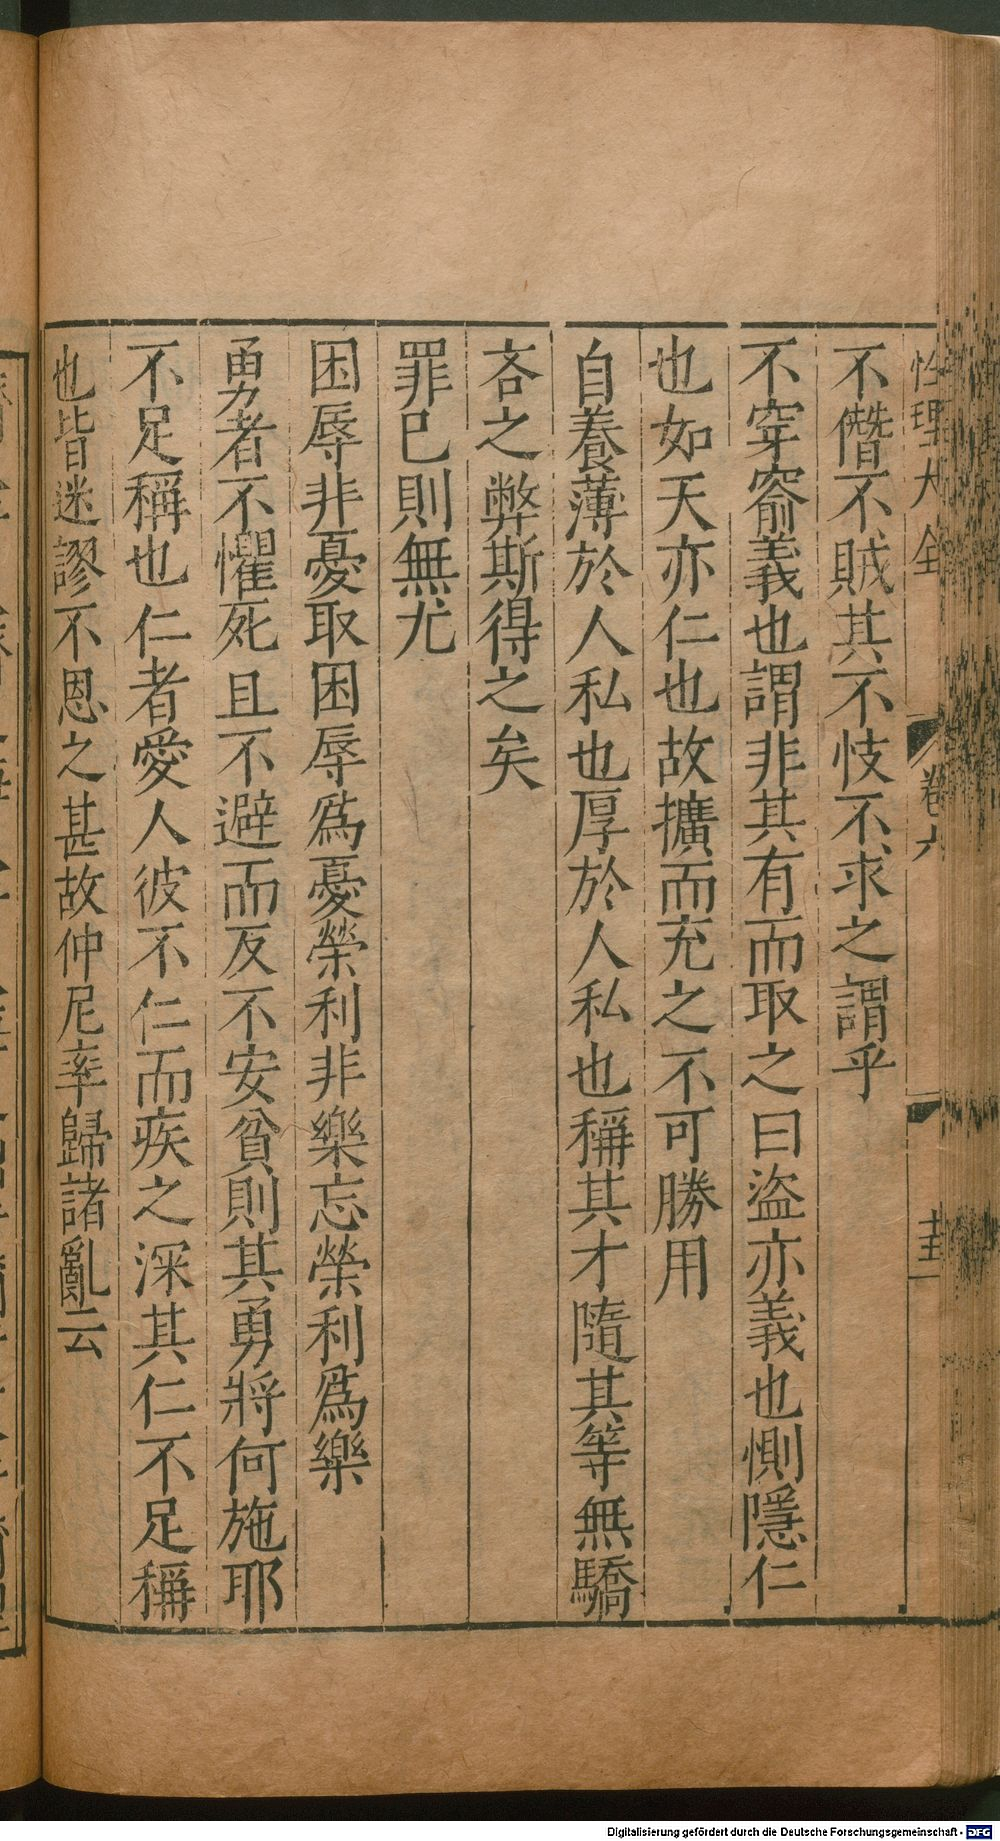 性理大全 卷六
不僭不賊其不忮不求之謂乎
不穿窬義也謂非其有而取之曰盜亦義也惻隱仁
也如天亦仁也故擴而充之不可勝用
自養薄於人私也厚於人私也稱其才隨其等無驕
吝之弊斯得之矣
罪已則無尤
困辱非憂取困辱爲憂榮利非樂忘榮利爲樂
勇者不懼死且不避而反不安貧則其勇將何施耶
不足稱也仁者愛人彼不仁而疾之深其仁不足稱
也皆迷謬不思之甚故仲尼率歸諸亂云
Digitalisierung gefördert durch die Deutsche Forschungsgemeinschaft - DFG